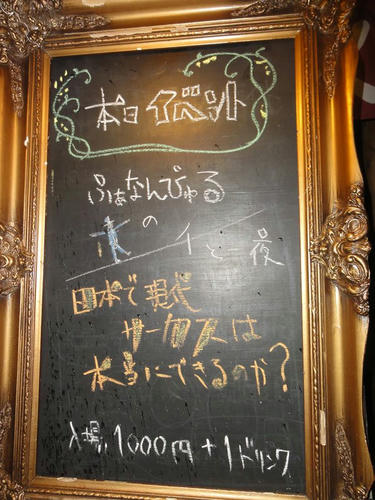 本日 イベント
ぷはなんぴゅる
の
ホイと夜
日本で現代
サーカスは
本当にできるのか?
入場 1000円 + 1ドリンク